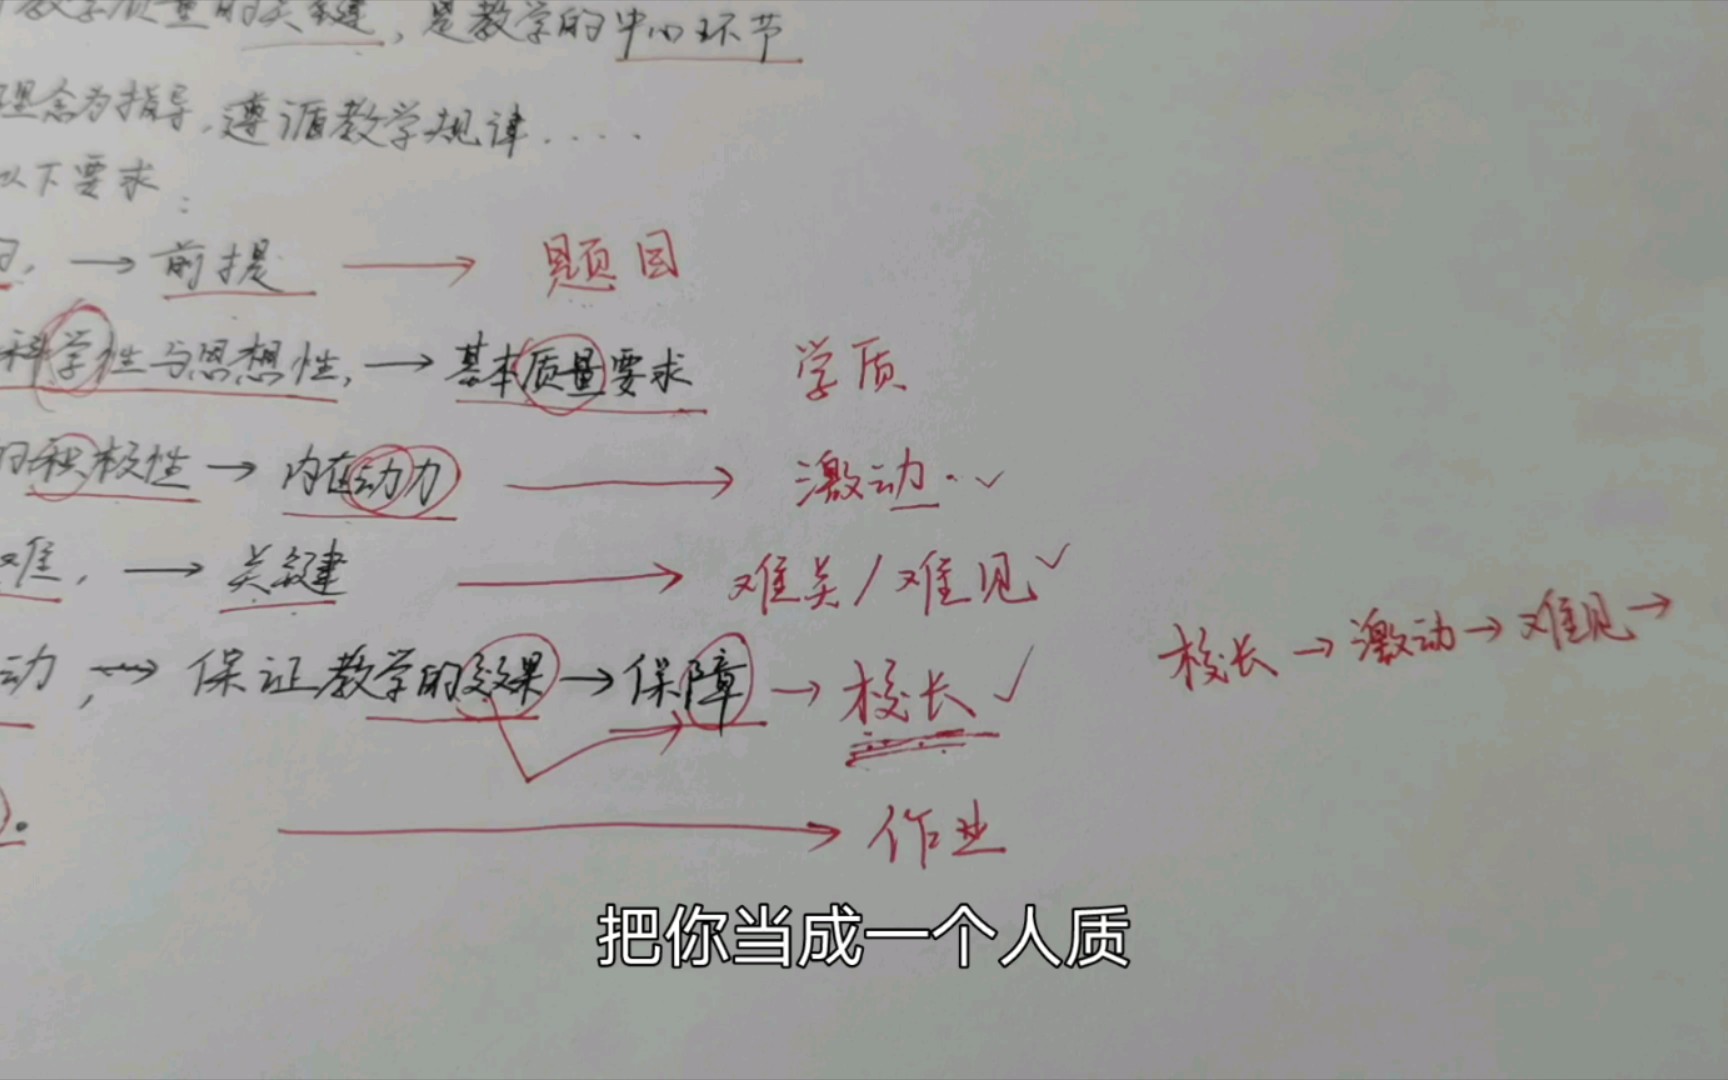 教学质量的关键，是教学的中心环节
理念为指导，遵循教学规律....
以下要求：
→前提→题目
科学性与思想性，→基本质量要求 学质
的积极性→内在动力→激动..✓
难，→关键→难关/难见✓
动，→保证教学的效果→保障→校长✓
校长→激动→难见→
→作业
把你当成一个人质